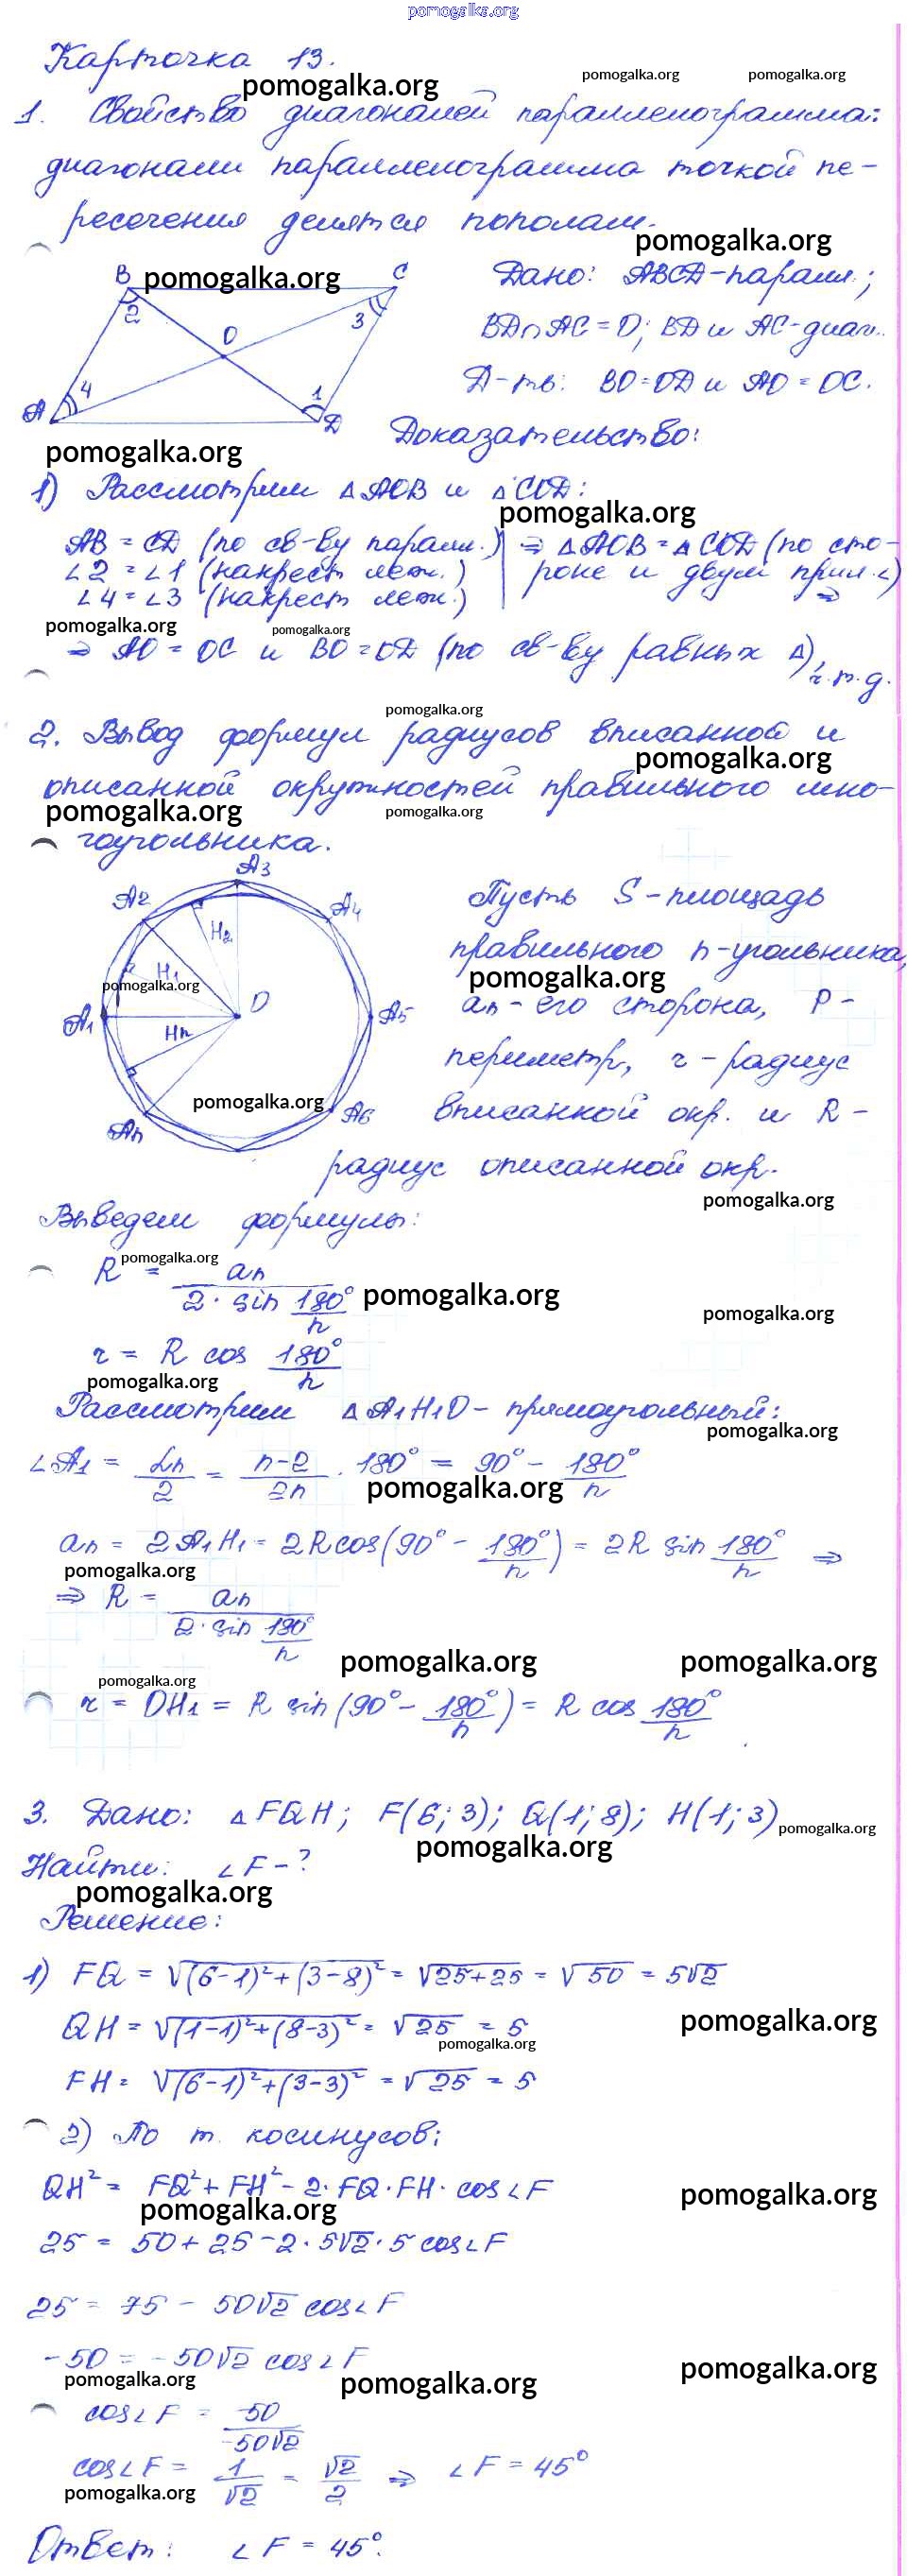 pomogalka.org
Карточка 13.
pomogalka.org pomogalka.org pomogalka.org
1. Свойство диагоналей параллелограмма:
диагонали параллелограмма точкой пе-
ресечения делятся пополам.
pomogalka.org
B pomogalka.org C
2 3 O 4 1
A D
Дано: ABCD-паралл.;
BD∩AC=O; BD и AC-диаг.
Д-ть: BO=OD и AO=OC.
Доказательство:
pomogalka.org
1) Рассмотрим ΔAOB и ΔCOD:
pomogalka.org
AB = CD (по св-ву паралл.) | ⇒ ΔAOB=ΔCOD (по сто-
∠2 = ∠1 (накрест леж.) | роне и двум прил.∠)
∠4=∠3 (накрест леж.) | ⇒
pomogalka.org pomogalka.org
⇒ AO = OC и BO=OD (по св-ву равных Δ), ч.т.д.
pomogalka.org
2. Вывод формул радиусов вписанной и
pomogalka.org
описанной окружностей правильного мно-
pomogalka.org pomogalka.org
гоугольника.
A3
A2 A4
H2
H1
pomogalka.org
A1 O A5
Hn
pomogalka.org
An A6
Пусть S-площадь
правильного n-угольника,
pomogalka.org
an-его сторона, P-
периметр, r-радиус
вписанной окр. и R-
радиус описанной окр.
pomogalka.org
Выведем формулы:
pomogalka.org
R = an / (2·sin 180°/n)
pomogalka.org
pomogalka.org
r = R cos 180°/n
pomogalka.org
Рассмотрим ΔA1H1O-прямоугольный:
pomogalka.org
∠A1 = αn/2 = (n-2)/2n · 180° = 90° - 180°/n
pomogalka.org
an = 2A1H1 = 2R cos(90° - 180°/n) = 2R sin 180°/n ⇒
pomogalka.org
⇒ R = an / (2·sin 180°/n)
pomogalka.org pomogalka.org
pomogalka.org
r = OH1 = R sin(90° - 180°/n) = R cos 180°/n
3. Дано: ΔFQH; F(6;3); Q(1;8); H(1;3)
pomogalka.org
pomogalka.org
Найти: ∠F-?
pomogalka.org
Решение:
1) FQ = √(6-1)²+(3-8)² = √25+25 = √50 = 5√2
QH = √(1-1)²+(8-3)² = √25 = 5
pomogalka.org
pomogalka.org
FH = √(6-1)²+(3-3)² = √25 = 5
2) По т. косинусов:
QH² = FQ²+FH²-2·FQ·FH·cos∠F
pomogalka.org
pomogalka.org
25 = 50+25-2·5√2·5 cos∠F
25 = 75 - 50√2 cos∠F
-50 = -50√2 cos∠F
pomogalka.org pomogalka.org pomogalka.org
cos∠F = -50 / -50√2
cos∠F = 1/√2 = √2/2 ⇒ ∠F = 45°
pomogalka.org
Ответ: ∠F = 45°.